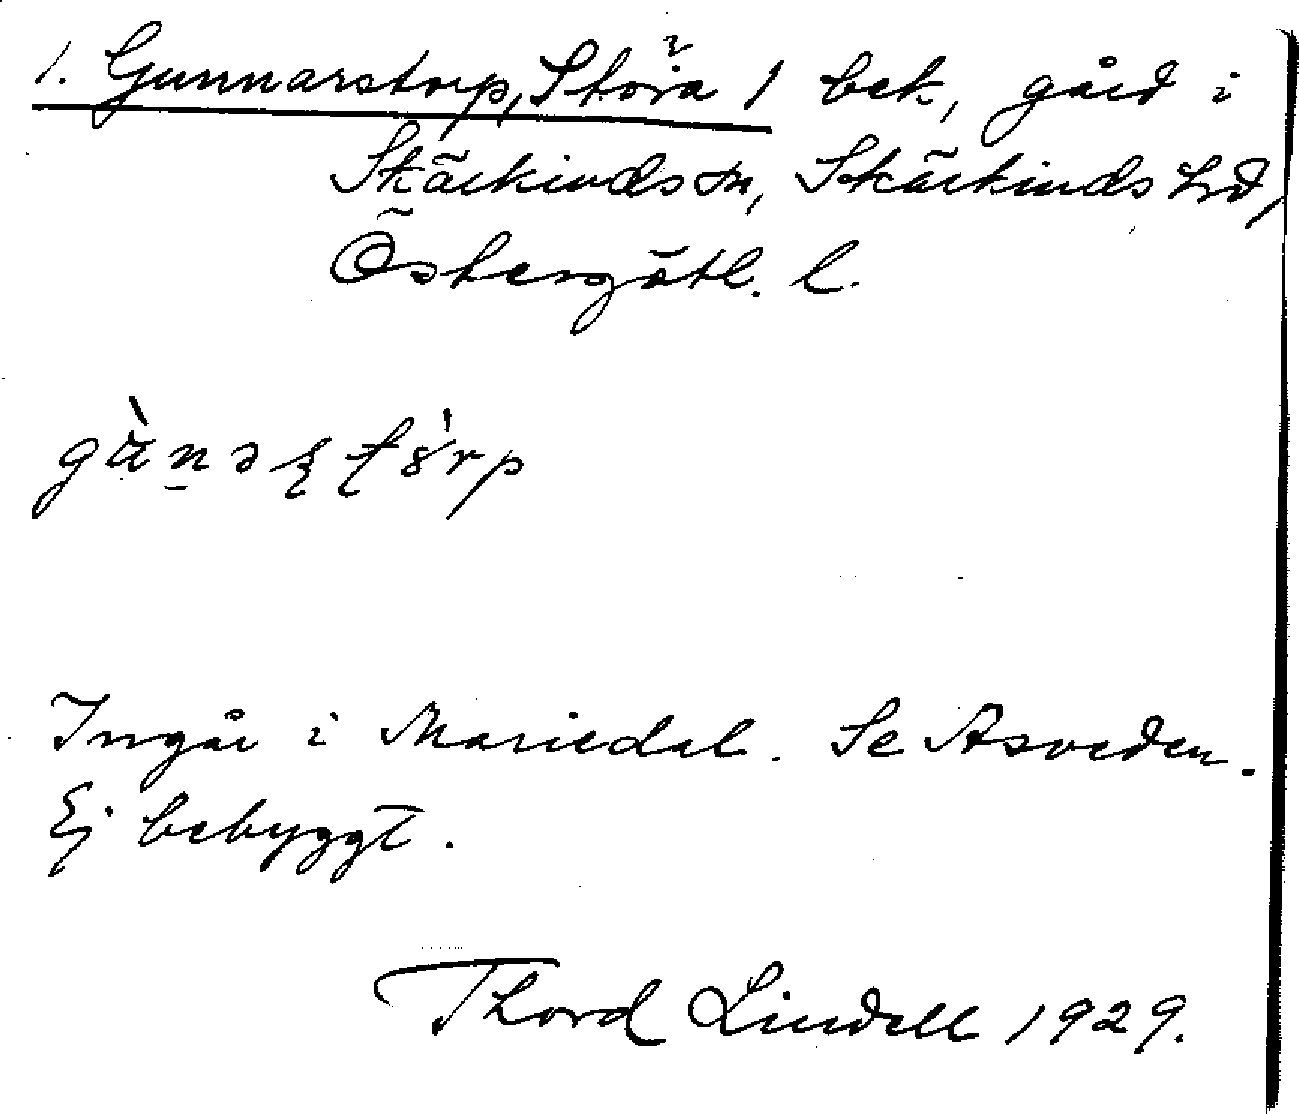 1. Gunnarstorp, Stora 1 bek, gård i
Skärkinds sn, Skärkinds hd,
Östergötl. l.
Ingår i Mariedal. Se Asveden.
Ej bebyggt.
Thord Lindell 1929.